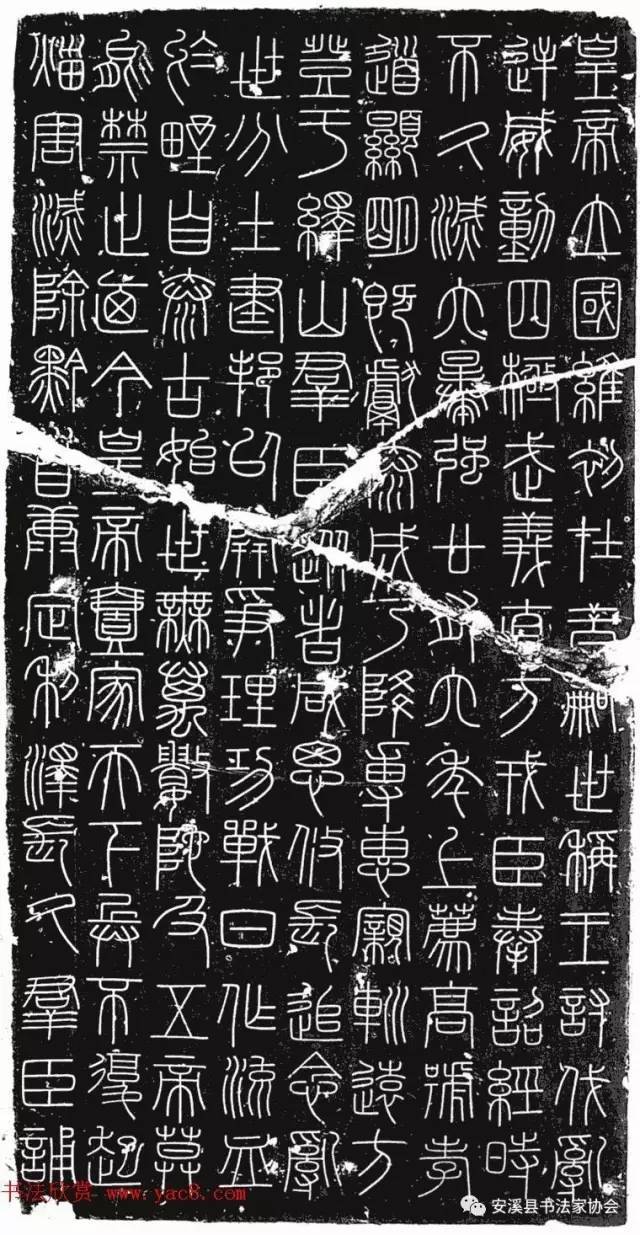 皇帝立國維初在昔嗣世稱王討伐亂
逆威動四極武義直方戎臣奉詔經時
不久滅六暴強廿有六年上薦高號孝
道顯明既獻泰成乃降專惠親巡遠方
登于繹山群臣從者咸思攸長追念亂
世分土建邦以開爭理功戰日作流血
於野自泰古始世無萬數陀及五帝莫
能禁止迺今皇帝壹家天下兵不復起
災害滅除黔首康定利澤長久群臣誦
书法欣赏 www.yac8.com
安溪县书法家协会